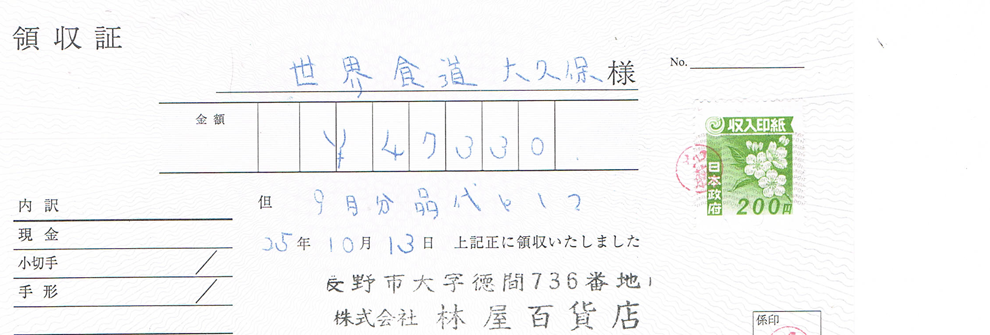 領収証
世界食道 大久保様
No.
金額 ¥47330
但 9月分品代として
25年10月13日 上記正に領収いたしました
内訳
現金
小切手
手形
長野市大字徳間736番地
株式会社 林屋百貨店
収入印紙
日本政府
200円
係印